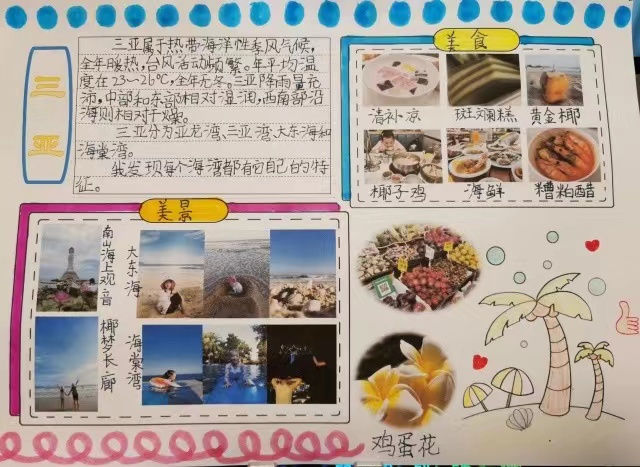 三亚
三亚属于热带海洋性季风气候,
全年暖热,台风活动频繁。年平均温
度在23~26℃,全年无冬。三亚降雨量充
沛,中部和东部相对湿润,西南部沿
海则相对干燥。
三亚分为亚龙湾、三亚湾、大东海和
海棠湾。
我发现每个海湾都有它自己的特
征。
美食
清补凉 斑斓糕 黄金椰
椰子鸡 海鲜 糟粕醋
美景
南山海上观音
大东海
椰梦长廊
海棠湾
鸡蛋花